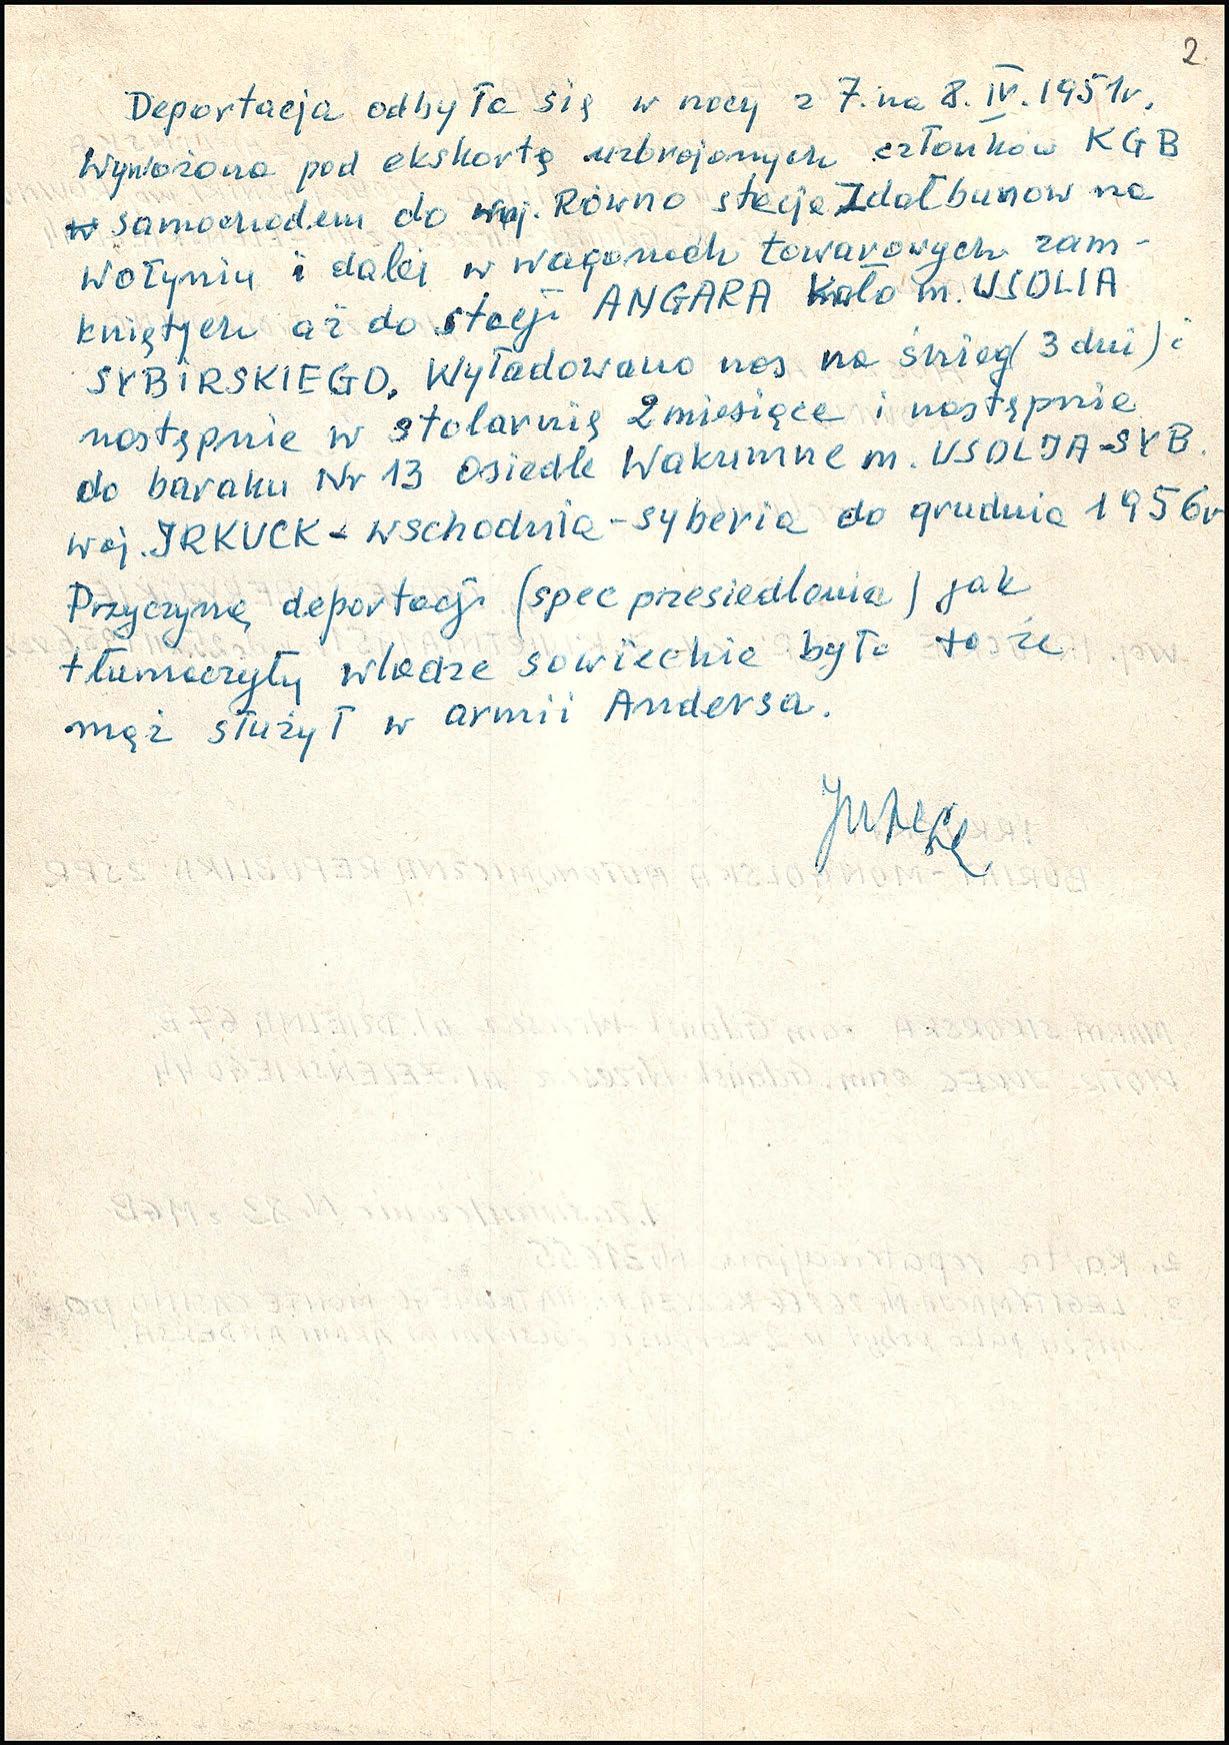 2
Deportacja odbyła się w nocy z 7. na 8. IV. 1951r.
Wywożono pod ekskortą uzbrojonych członków KGB
samochodem do woj. Równo stacja Zdałbunow na
Wołyniu i dalej w wagonach towarowych zam-
kniętych aż do stacji ANGARA koło m. USOLIA
SYBIRSKIEGO. Wyładowano nas na śnieg (3 dni) i
następnie w stolarnię 2 miesiące i następnie
do baraku Nr 13 Osiedle Wakumne m. USOLJA-SYB.
woj. IRKUCK - wschodnia - syberia do grudnia 1956r
Przyczyną deportacji (spec przesiedlenia) jak
tłumaczyły władze sowieckie było to że
mąż służył w armii Andersa.